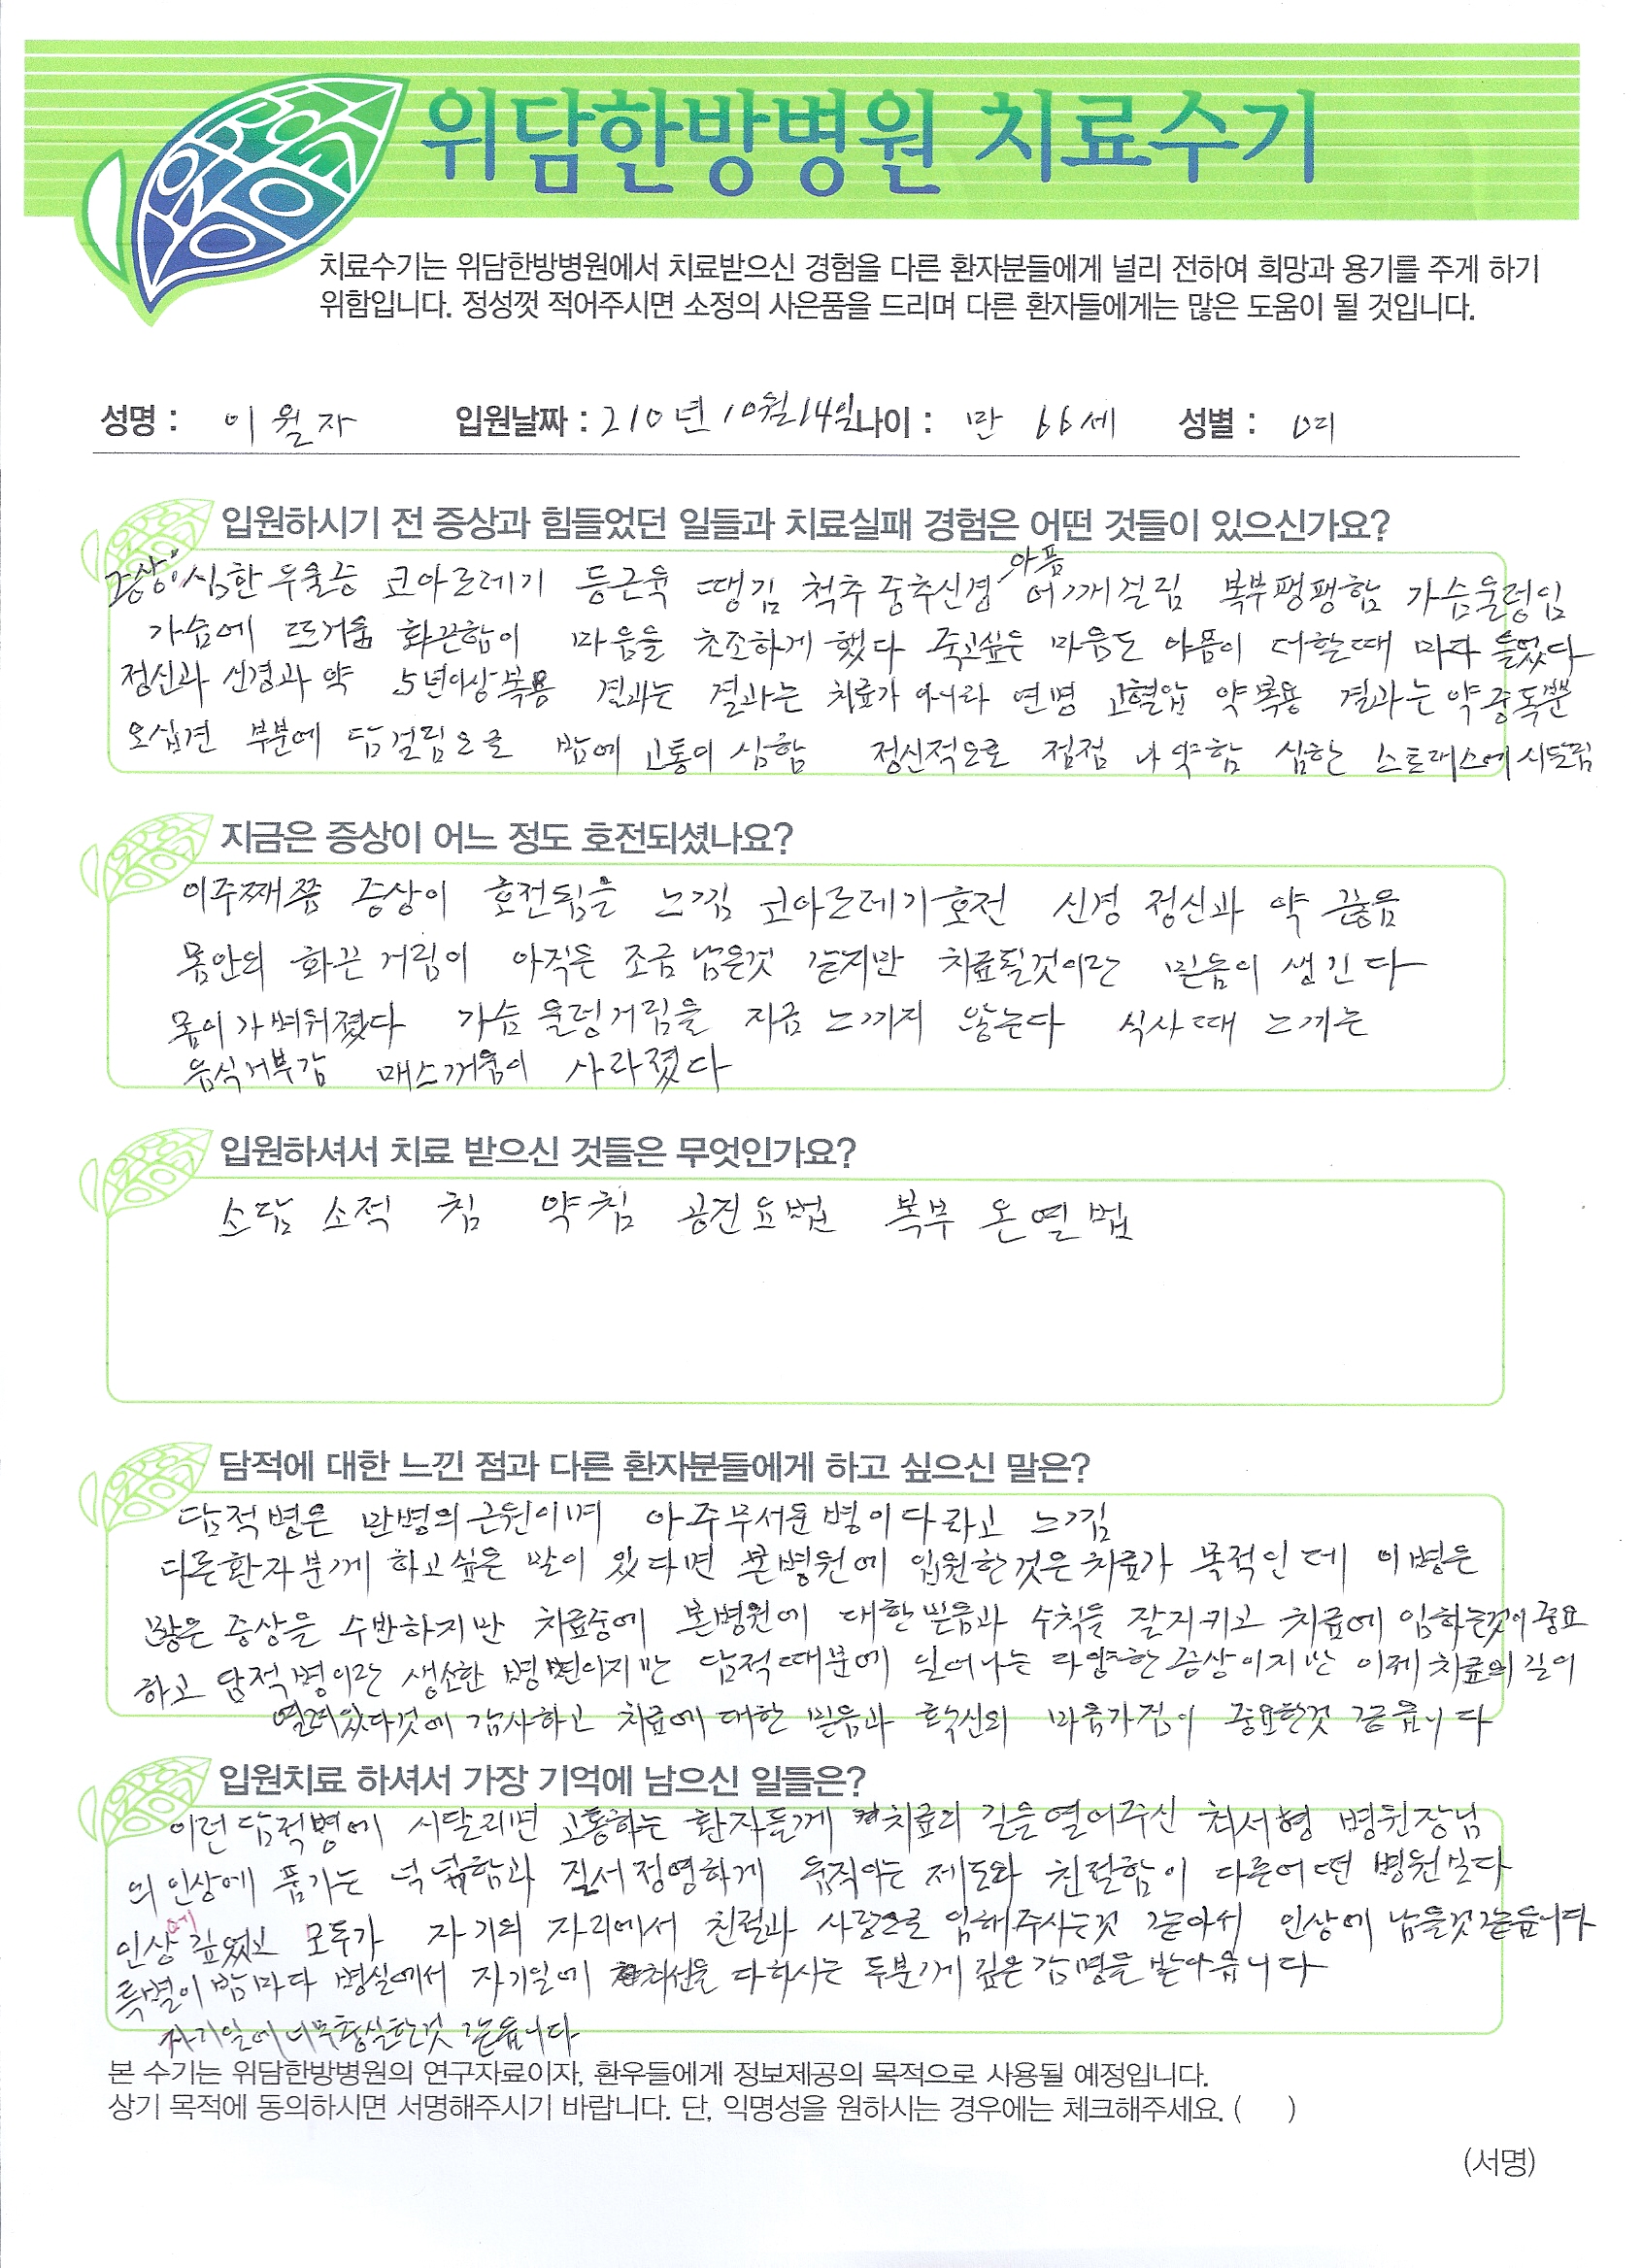 위담한방병원 치료수기
치료수기는 위담한방병원에서 치료받으신 경험을 다른 환자분들에게 널리 전하여 희망과 용기를 주게 하기
위함입니다. 정성껏 적어주시면 소정의 사은품을 드리며 다른 환자들에게는 많은 도움이 될 것입니다.
성명 : 이월자 입원날짜 : 210년 10월 14일 나이 : 만 66세 성별 : 여
입원하시기 전 증상과 힘들었던 일들과 치료실패 경험은 어떤 것들이 있으신가요?
증상이 심한 우울증 코아르레기 등근육 땡김 척추 중추신경 아픔 어깨걸림 복부팽팽함 가슴울렁임
가슴에 뜨거움 화끈합이 마음을 초조하게 했다 죽고싶은 마음도 아픔이 더할때 마다 들었다
정신과 신경과 약 5년이상복용 결과는 결과는 치료가 아니라 연명 고혈압 약복용 결과는 약중독뿐
오십견 부분에 담걸림으로 밤에 고통이 심함 정신적으로 점점 나약함 심한 스트레스에 시달림
지금은 증상이 어느 정도 호전되셨나요?
이주째쯤 증상이 호전됨을 느낌 코아르레기호전 신경 정신과 약 끊음
몸안의 화끈거림이 아직은 조금 남은것 같지만 치료될것이란 믿음이 생긴다
몸이 가벼워졌다 가슴 울렁거림을 지금 느끼지 않는다 식사때 느끼는
음식거부감 매스꺼움이 사라졌다
입원하셔서 치료 받으신 것들은 무엇인가요?
소담 소적 침 약침 공진요법 복부 온열법
담적에 대한 느낀 점과 다른 환자분들에게 하고 싶으신 말은?
담적병은 만병의 근원이며 아주무서운병이다라고 느낌
다른환자분께 하고싶은 말이 있다면 본병원에 입원한것은 치료가 목적인데 이병은
많은 증상을 수반하지만 치료중에 본병원에 대한 믿음과 수칙을 잘지키고 치료에 임하는것이 중요
하고 담적병이란 생소한 병명이지만 담적때문에 일어나는 다양한 증상이지만 이제 치료의 길이
열려있다것에 감사하고 치료에 대한 믿음과 확신의 마음가짐이 중요한것 같읍니다
입원치료 하셔서 가장 기억에 남으신 일들은?
이런 담적병에 시달리면 고통하는 환자들께 치료의 길을 열어주신 최서형 병원장님
의 인상에 품기는 넉넓함과 질서정연하게 움직이는 제도와 친절함이 다른어떤 병원보다
인상에 깊었고 모두가 자기의 자리에서 친절과 사랑으로 임해주시는것 같아서 인상에 남을것같읍니다
특별이 밤마다 병실에서 자기일에 최선을 다하시는 두분께 깊은 감명을 받아읍니다
자기일에 너무충실한것 같읍니다
본 수기는 위담한방병원의 연구자료이자, 환우들에게 정보제공의 목적으로 사용될 예정입니다.
상기 목적에 동의하시면 서명해주시기 바랍니다. 단, 익명성을 원하시는 경우에는 체크해주세요. ( )
(서명)